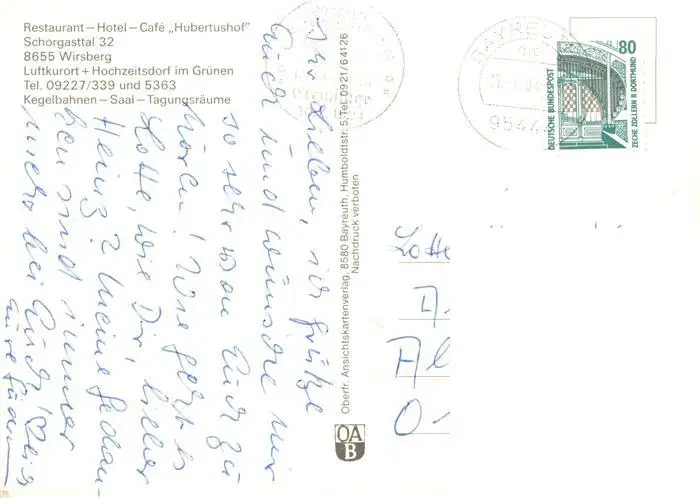 Restaurant – Hotel – Café „Hubertushof"
Schorgasttal 32
8655 Wirsberg
Luftkurort + Hochzeitsdorf im Grünen
Tel. 09227/339 und 5363
Kegelbahnen – Saal – Tagungsräume
Ihr Lieben, ich grüße
Euch und wünsche mir
so sehr von Euch zu
hören! Wie geht es
Lotte, wie Dir, lieber
Heinz? Meine Gedan-
ken sind immer
bei Euch!
Eure
Oberfr. Ansichtskartenverlag, 8580 Bayreuth, Humboldtstr. 5, Tel. 0921/64126
Nachdruck verboten
OA
B
BAYREUTH
9544
80
DEUTSCHE BUNDESPOST
ZECHE ZOLLERN II DORTMUND
Lotte
O-